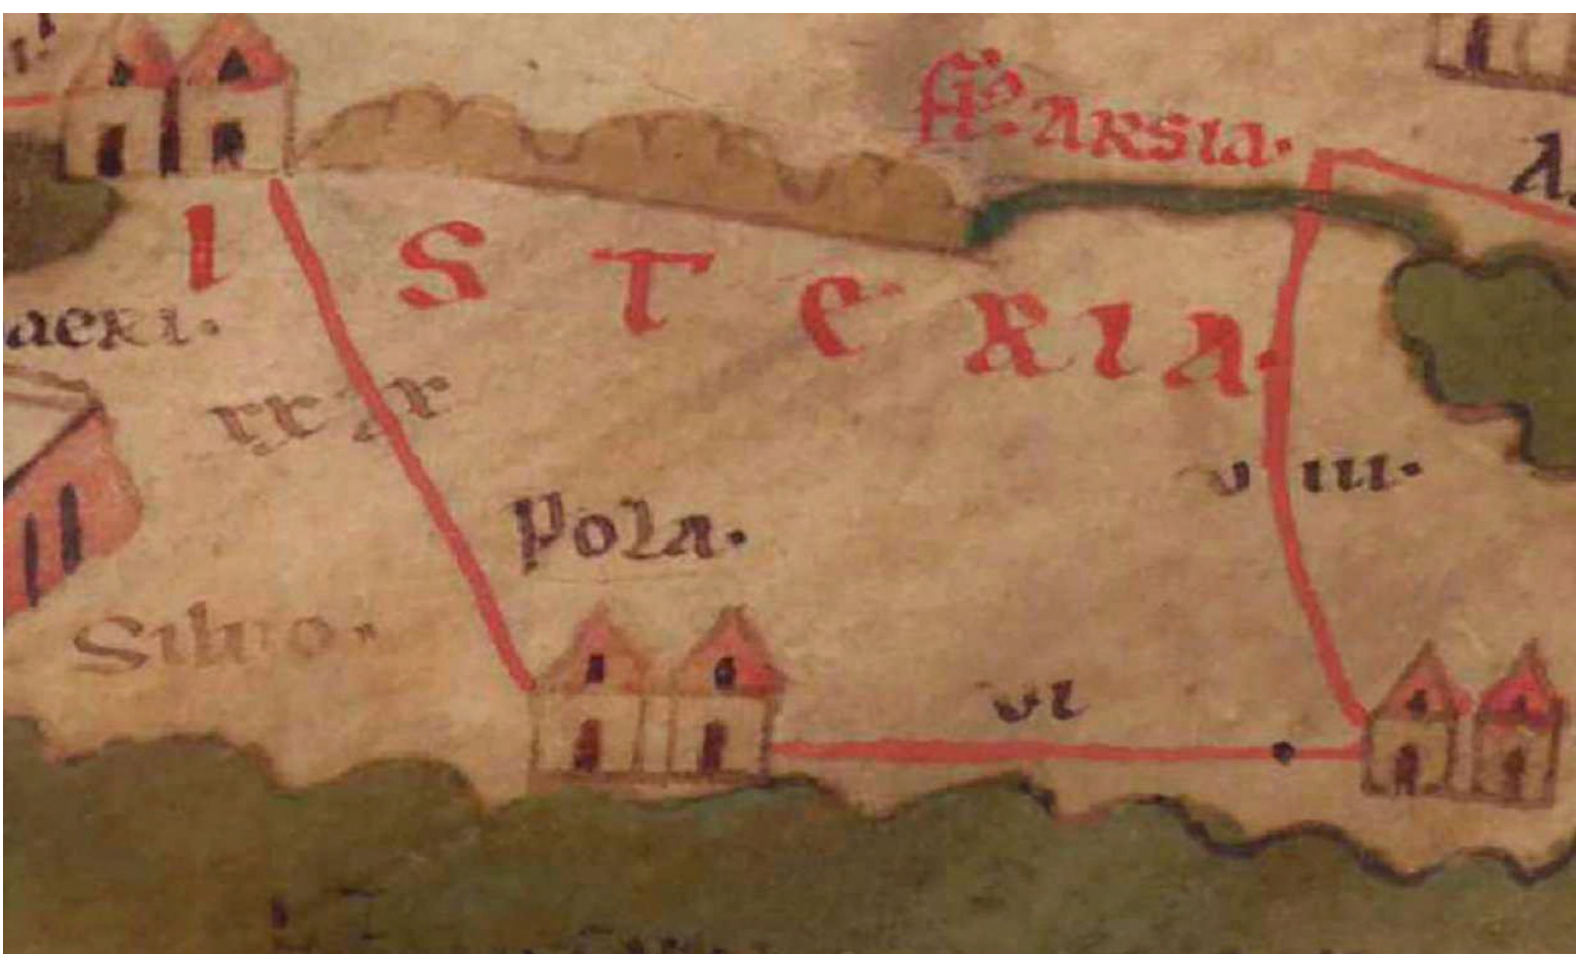 fl. ARSIA.
ISTERIA.
acRI.
Pola.
VIII.
Silvo.
vi